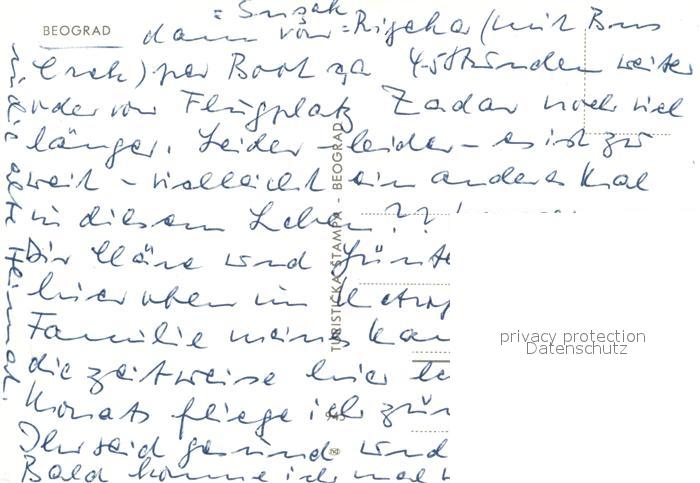 BEOGRAD
= Sušak
dann von = Rijeka (mit Bus
) per Boot ca 4-5 Stunden weiter
oder vom Flugplatz Zadar noch viel
länger. Leider - leider - es ist zu
weit - vielleicht ein anderes Mal
in diesem Leben??
Dir Kläre und Günte
hier oben im
Familie meines
die zeitweise hier le
Monats fliege ich zür
Ihr seid gesund und
Bald komme ich mal
in die alte Heimat.
TURISTIČKA ŠTAMPA - BEOGRAD
privacy protection
Datenschutz